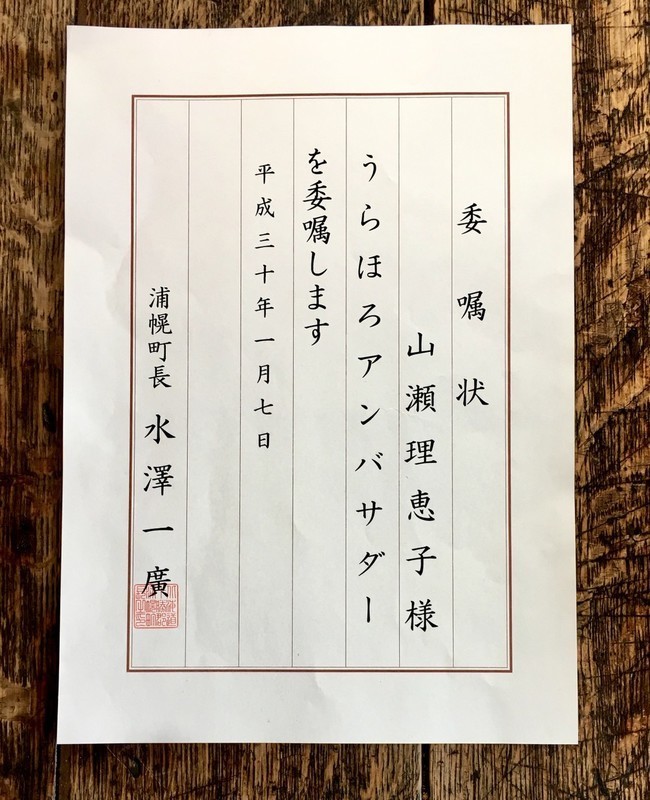 委嘱状
山瀬理恵子様
うらほろアンバサダー
を委嘱します
平成三十年一月七日
浦幌町長 水澤一廣